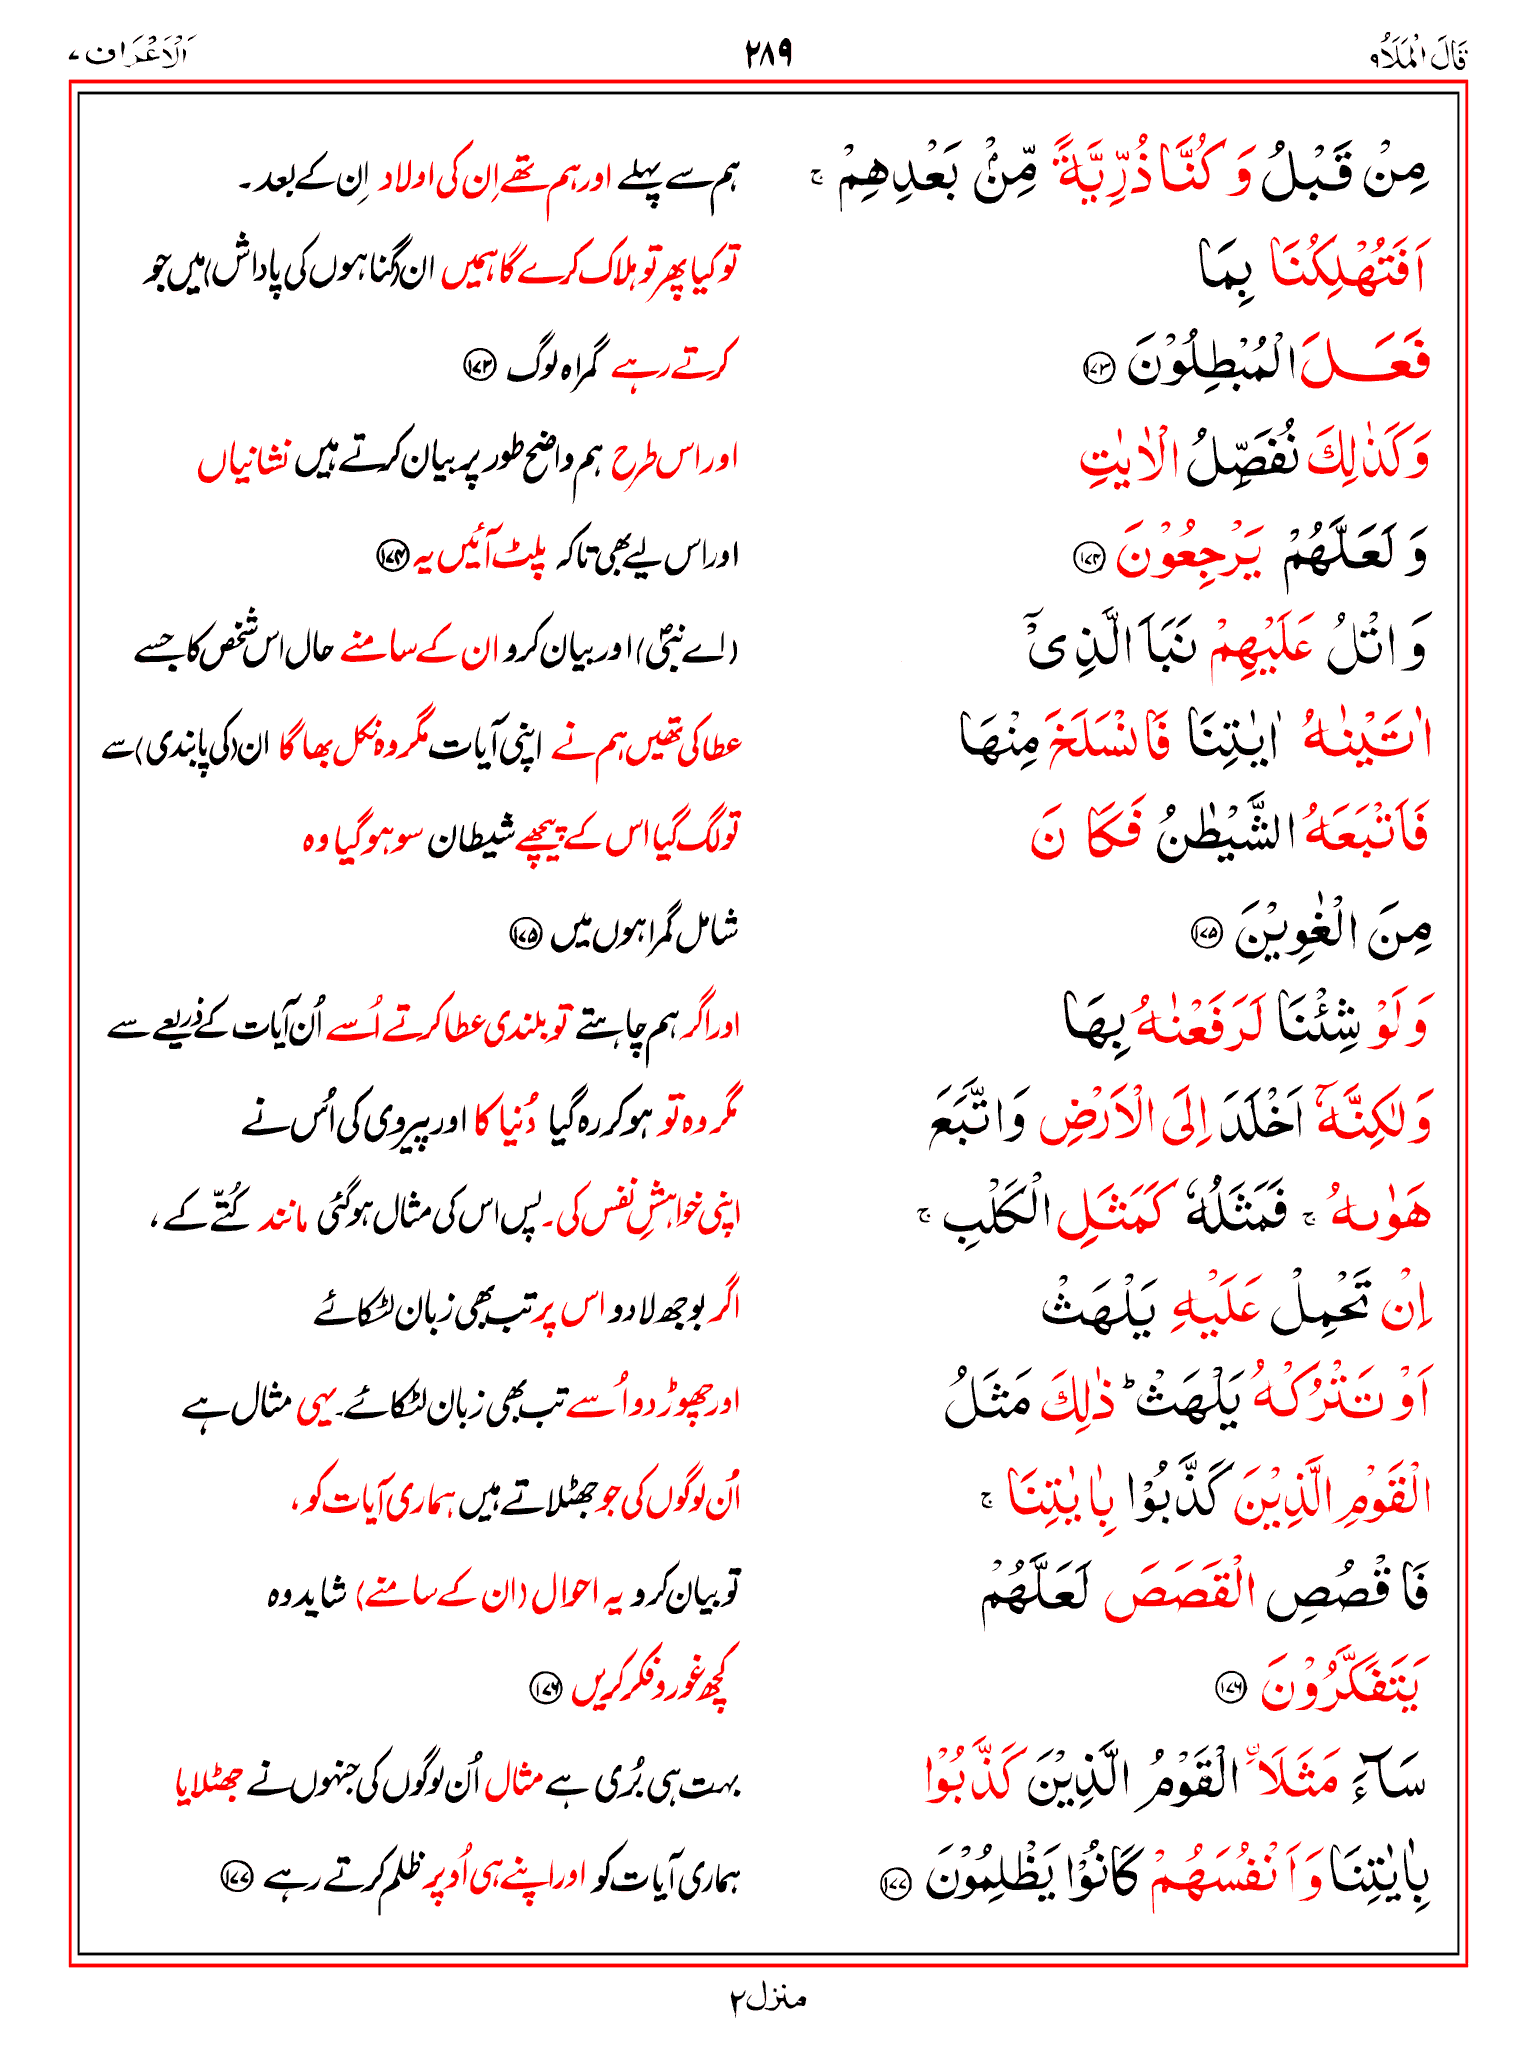 قَالَ الْمَلَاُ ۹
۲۸۹
اَلْاَعْرَاف ۷
مِنْ قَبْلُ وَكُنَّا ذُرِّیَّةً مِّنْۢ بَعْدِهِمْ ۚ
ہم سے پہلے اور ہم تھے اِن کی اولاد اِن کے بعد۔
اَفَتُهْلِكُنَا بِمَا
تو کیا پھر تو ہلاک کرے گا ہمیں ان (گناہوں کی پاداش) میں جو
فَعَلَ الْمُبْطِلُوْنَ ۝۱۷۳
کرتے رہے گمراہ لوگ ۝۱۷۳
وَكَذٰلِكَ نُفَصِّلُ الْاٰیٰتِ
اور اس طرح ہم واضح طور پر بیان کرتے ہیں نشانیاں
وَ لَعَلَّهُمْ یَرْجِعُوْنَ ۝۱۷۴
اور اس لیے بھی تاکہ پلٹ آئیں یہ ۝۱۷۴
وَ اتْلُ عَلَیْهِمْ نَبَاَ الَّذِیْۤ
(اے نبیؐ) اور بیان کرو ان کے سامنے حال اس شخص کا جسے
اٰتَیْنٰهُ اٰیٰتِنَا فَانْسَلَخَ مِنْهَا
عطا کی تھیں ہم نے اپنی آیات مگر وہ نکل بھاگا ان (کی پابندی) سے
فَاَتْبَعَهُ الشَّیْطٰنُ فَكَا نَ
تو لگ گیا اس کے پیچھے شیطان سو ہو گیا وہ
مِنَ الْغٰوِیْنَ ۝۱۷۵
شامل گمراہوں میں ۝۱۷۵
وَلَوْ شِئْنَا لَرَفَعْنٰهُ بِهَا
اور اگر ہم چاہتے تو بلندی عطا کرتے اُسے اُن آیات کے ذریعے سے
وَلٰكِنَّهٗۤ اَخْلَدَ اِلَى الْاَرْضِ وَاتَّبَعَ
مگر وہ تو ہو کر رہ گیا دُنیا کا اور پیروی کی اُس نے
هَوٰىهُ ۚ فَمَثَلُهٗ كَمَثَلِ الْكَلْبِ ۚ
اپنی خواہشِ نفس کی۔ پس اس کی مثال ہو گئی مانند کُتّے کے،
اِنْ تَحْمِلْ عَلَیْهِ یَلْهَثْ
اگر بوجھ لادو اس پر تب بھی زبان لٹکائے
اَوْ تَتْرُكْهُ یَلْهَثْ ؕ ذٰلِكَ مَثَلُ
اور چھوڑ دو اُسے تب بھی زبان لٹکائے۔ یہی مثال ہے
الْقَوْمِ الَّذِیْنَ كَذَّبُوْا بِاٰیٰتِنَا ۚ
اُن لوگوں کی جو جھٹلاتے ہیں ہماری آیات کو،
فَاقْصُصِ الْقَصَصَ لَعَلَّهُمْ
تو بیان کرو یہ احوال (ان کے سامنے) شاید وہ
یَتَفَكَّرُوْنَ ۝۱۷۶
کچھ غور و فکر کریں ۝۱۷۶
سَآءَ مَثَلَاْ ۨالْقَوْمُ الَّذِیْنَ كَذَّبُوْا
بہت ہی بُری ہے مثال اُن لوگوں کی جنہوں نے جھٹلایا
بِاٰیٰتِنَا وَاَنْفُسَهُمْ كَانُوْا یَظْلِمُوْنَ ۝۱۷۷
ہماری آیات کو اور اپنے ہی اُوپر ظلم کرتے رہے ۝۱۷۷
منزل ۲